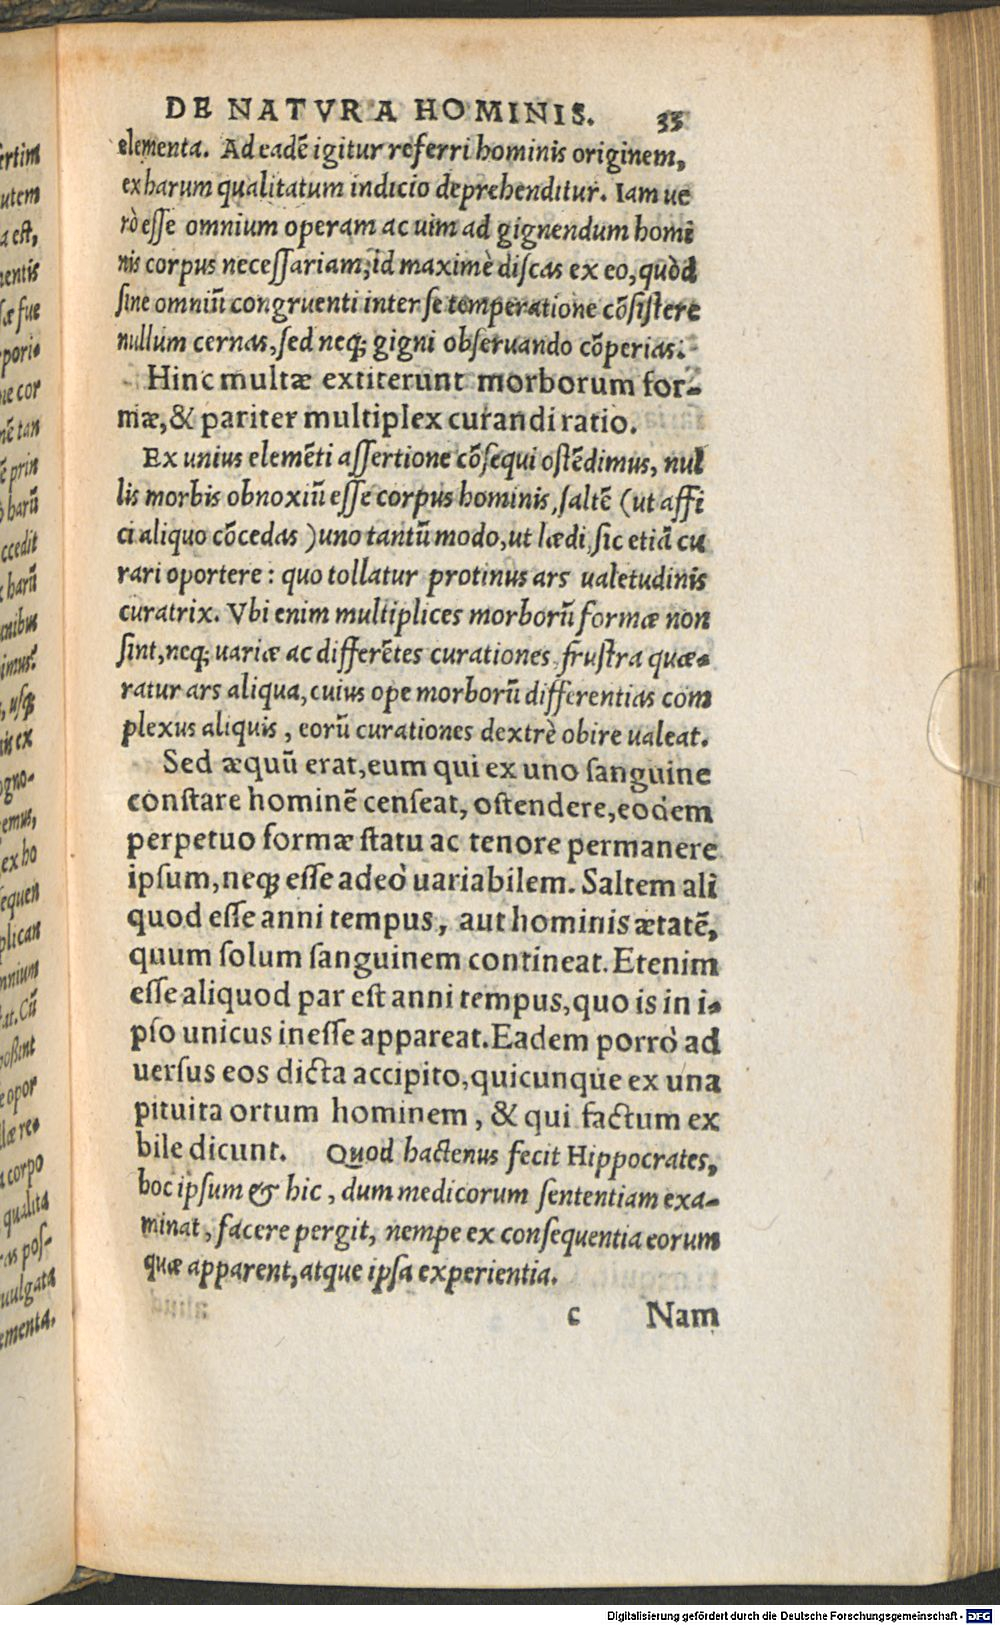 DE NATVRA HOMINIS. 33
elementa. Ad eadē igitur referri hominis originem,
ex harum qualitatum indicio deprehenditur. Iam ue
rò esse omnium operam ac uim ad gignendum homi
nis corpus necessariam, id maximè discas ex eo, quòd
sine omniū congruenti inter se temperatione cōsistere
nullum cernas, sed neq; gigni obseruando cōperias.
Hinc multæ extiterunt morborum for-
mæ, & pariter multiplex curandi ratio.
Ex unius elemēti assertione cōsequi ostēdimus, nul
lis morbis obnoxiū esse corpus hominis, saltē (ut affi
ci aliquo cōcedas) uno tantū modo, ut lædi, sic etiā cu
rari oportere: quo tollatur protinus ars ualetudinis
curatrix. Vbi enim multiplices morborū formæ non
sint, neq; uariæ ac differētes curationes, frustra quæ-
ratur ars aliqua, cuius ope morborū differentias com
plexus aliquis, eorū curationes dextrè obire ualeat.
Sed æquū erat, eum qui ex uno sanguine
constare hominē censeat, ostendere, eodem
perpetuo formæ statu ac tenore permanere
ipsum, neq; esse adeò uariabilem. Saltem ali
quod esse anni tempus, aut hominis ætatē,
quum solum sanguinem contineat. Etenim
esse aliquod par est anni tempus, quo is in i-
pso unicus inesse appareat. Eadem porrò ad
uersus eos dicta accipito, quicunque ex una
pituita ortum hominem, & qui factum ex
bile dicunt. Quod hactenus fecit Hippocrates,
hoc ipsum & hic, dum medicorum sententiam exa-
minat, facere pergit, nempe ex consequentia eorum
quæ apparent, atque ipsa experientia.
c Nam
Digitalisierung gefördert durch die Deutsche Forschungsgemeinschaft - DFG